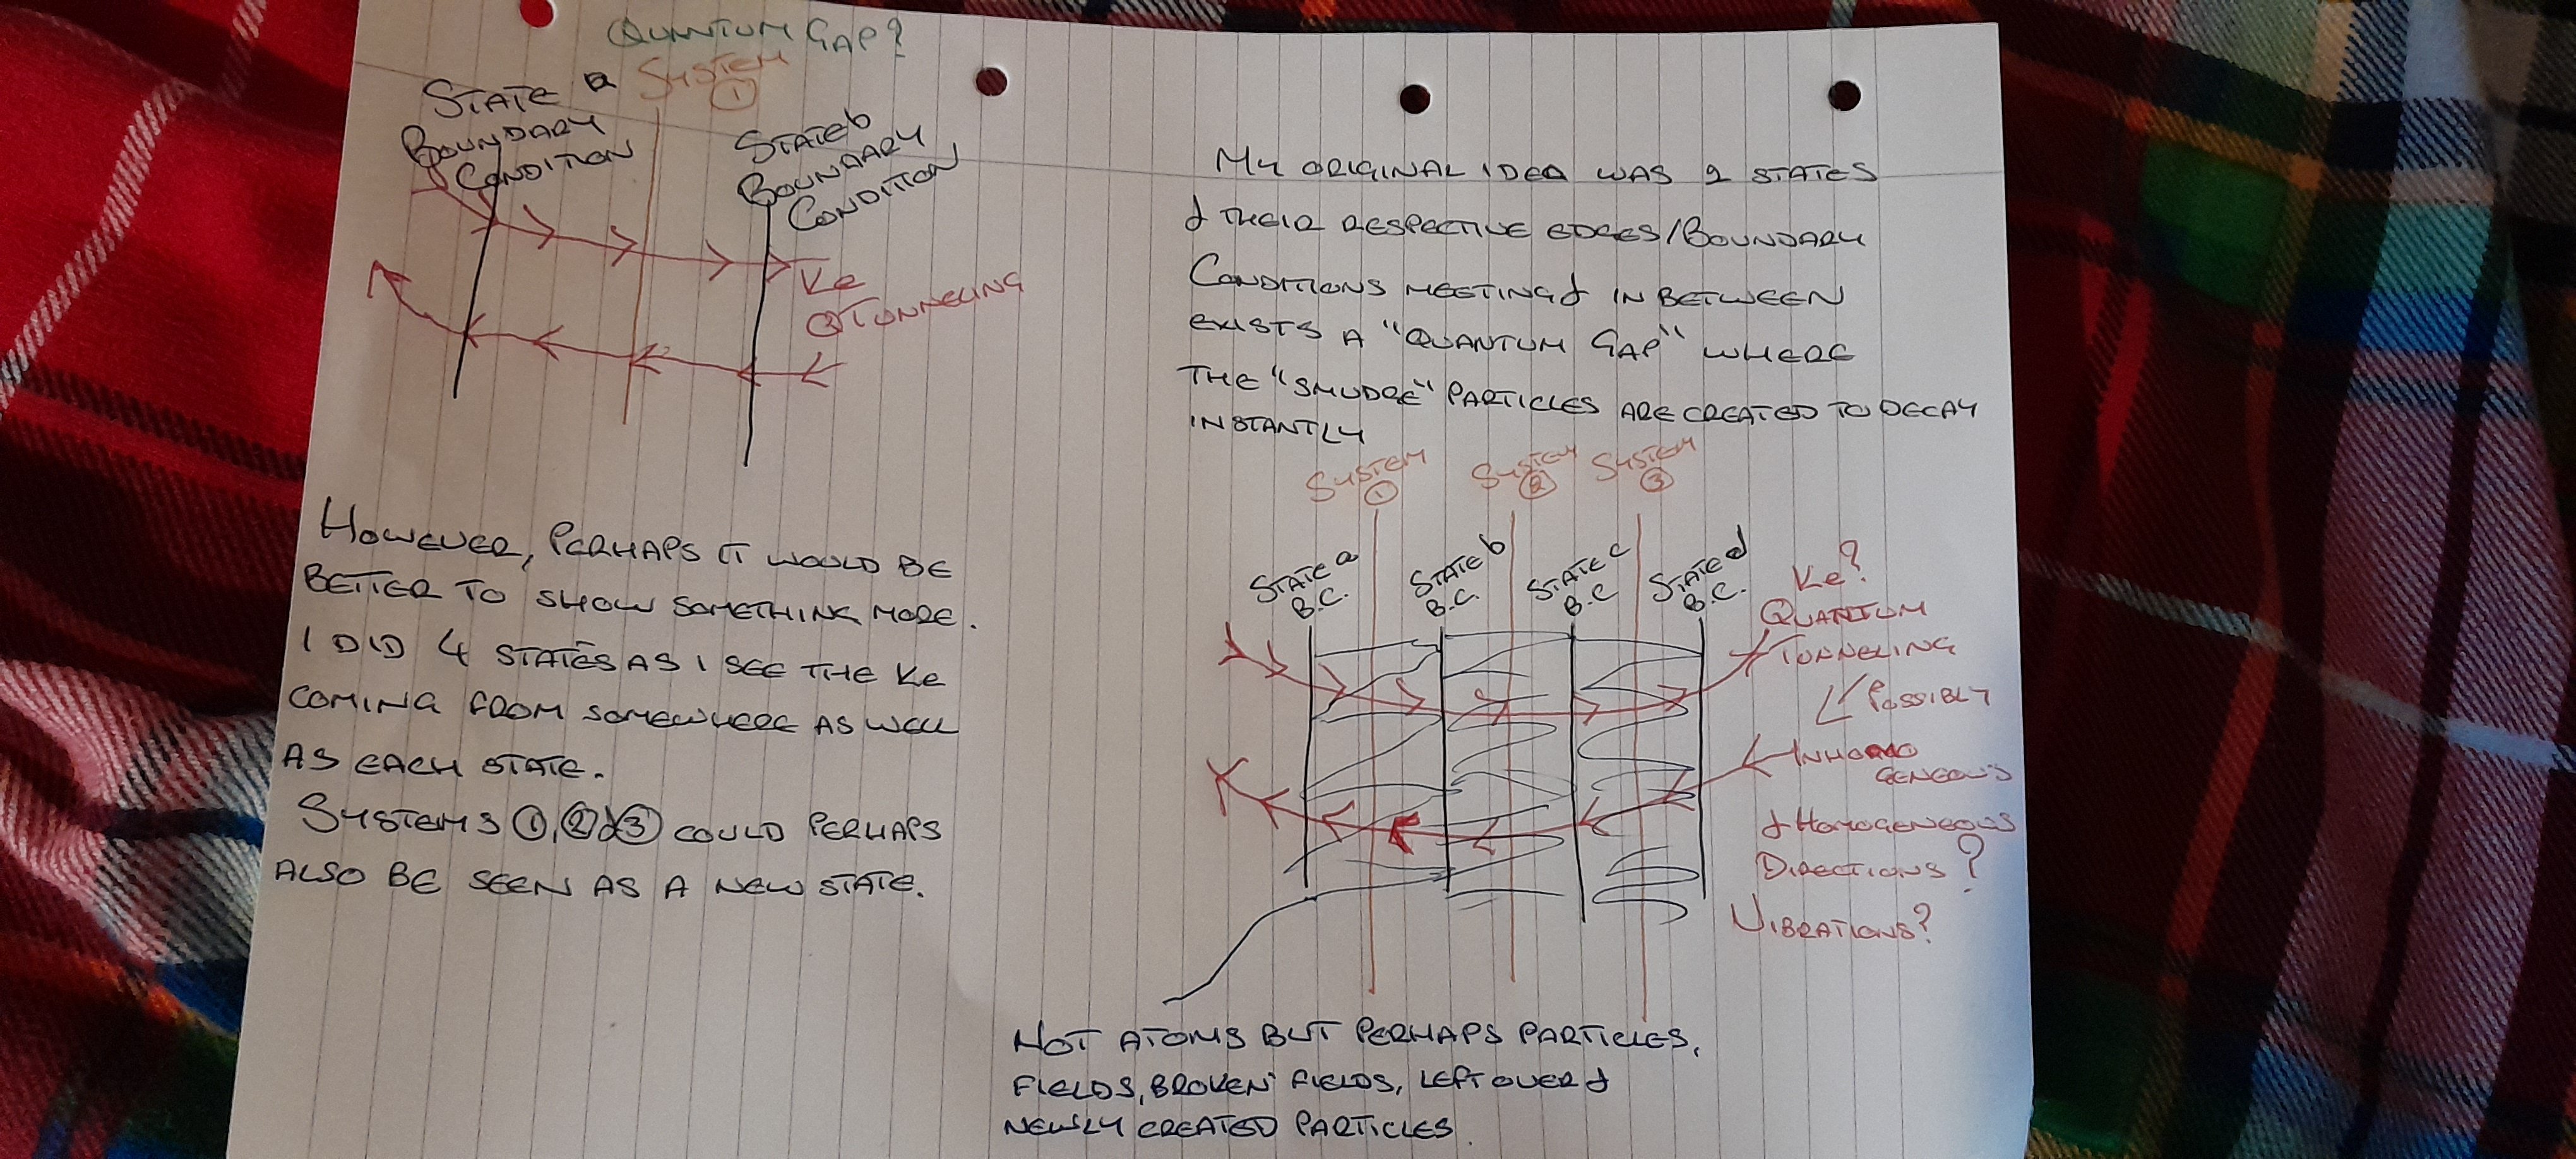 QUANTUM GAP?
STATE a SYSTEM
①
BOUNDARY
CONDITION
STATE b
BOUNARY
CONDITION
Ke
QTUNNELING
HOWEVER, PERHAPS IT WOULD BE
BETTER TO SHOW SOMETHING MORE.
I DID 4 STATES AS I SEE THE Ke
COMING FROM SOMEWHERE AS WELL
AS EACH STATE.
SYSTEMS ①,②&③ COULD PERHAPS
ALSO BE SEEN AS A NEW STATE.
MY ORIGINAL IDEA WAS 2 STATES
& THEIR RESPECTIVE EDGES/BOUNDARY
CONDITIONS MEETING & IN BETWEEN
EXISTS A "QUANTUM GAP" WHERE
THE "SMUDGE" PARTICLES ARE CREATED TO DECAY
INSTANTLY
SYSTEM ①
SYSTEM ②
SYSTEM ③
STATE a
B.C.
STATE b
B.C.
STATE c
B.C
STATE d
B.C.
Ke?
QUANTUM
TUNNELING
POSSIBLY
INHOMO
GENEOUS
& HOMOGENEOUS
DIRECTIONS?
VIBRATIONS?
NOT ATOMS BUT PERHAPS PARTICLES,
FIELDS, BROKEN FIELDS, LEFT OVER &
NEWLY CREATED PARTICLES.